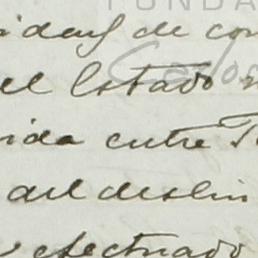 FUNDA
de con
Carlos
el Estado
ida entre
del deslin
efectuado